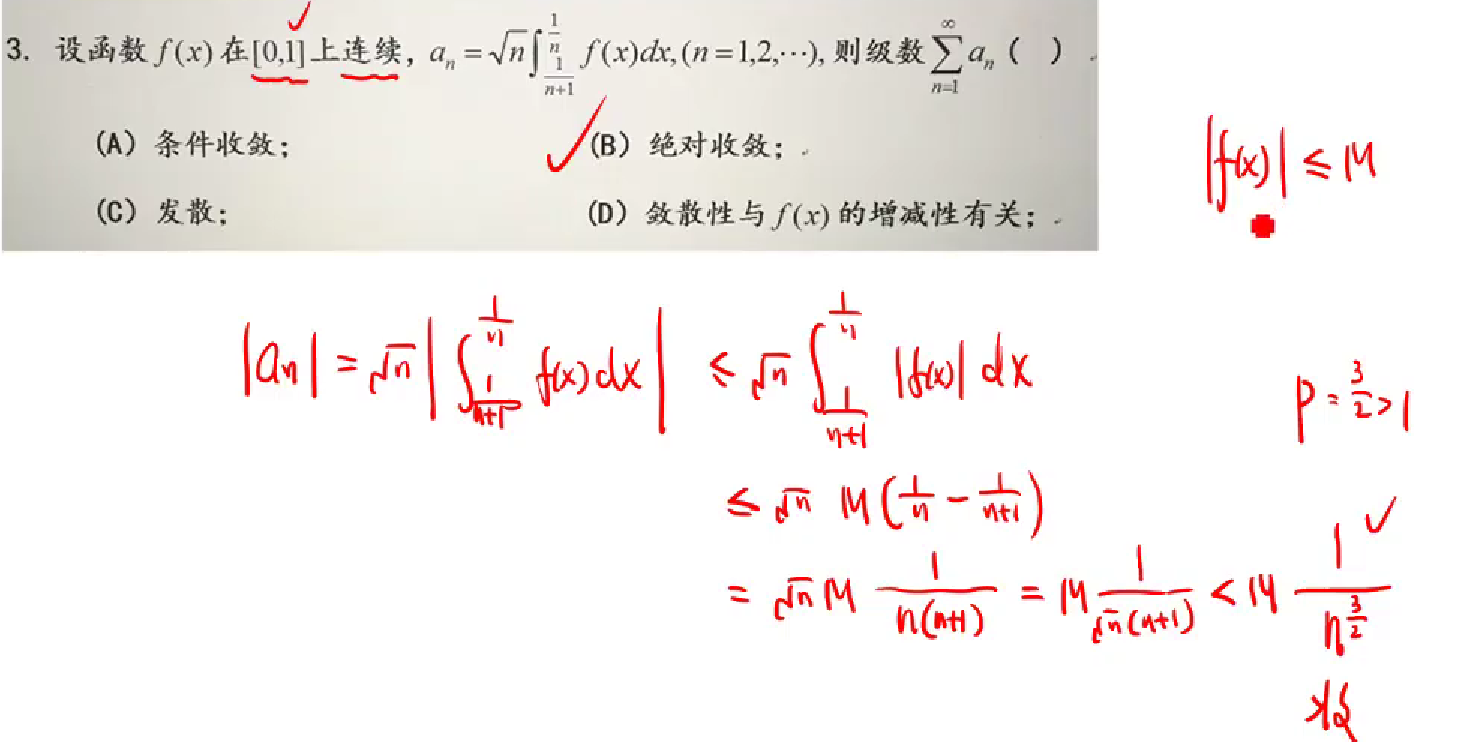 3. 设函数 f(x) 在[0,1]上连续, a_n = √n ∫_{1/(n+1)}^{1/n} f(x)dx, (n=1,2,⋯), 则级数 ∑_{n=1}^{∞} a_n ( )
(A) 条件收敛; (B) 绝对收敛;
(C) 发散; (D) 敛散性与 f(x) 的增减性有关;
|f(x)| ≤ M
|a_n| = √n |∫_{1/(n+1)}^{1/n} f(x)dx| ≤ √n ∫_{1/(n+1)}^{1/n} |f(x)| dx
p = 3/2 > 1
≤ √n M (1/n - 1/(n+1))
= √n M 1/(n(n+1)) = M 1/(√n(n+1)) < M 1/n^{3/2}
收